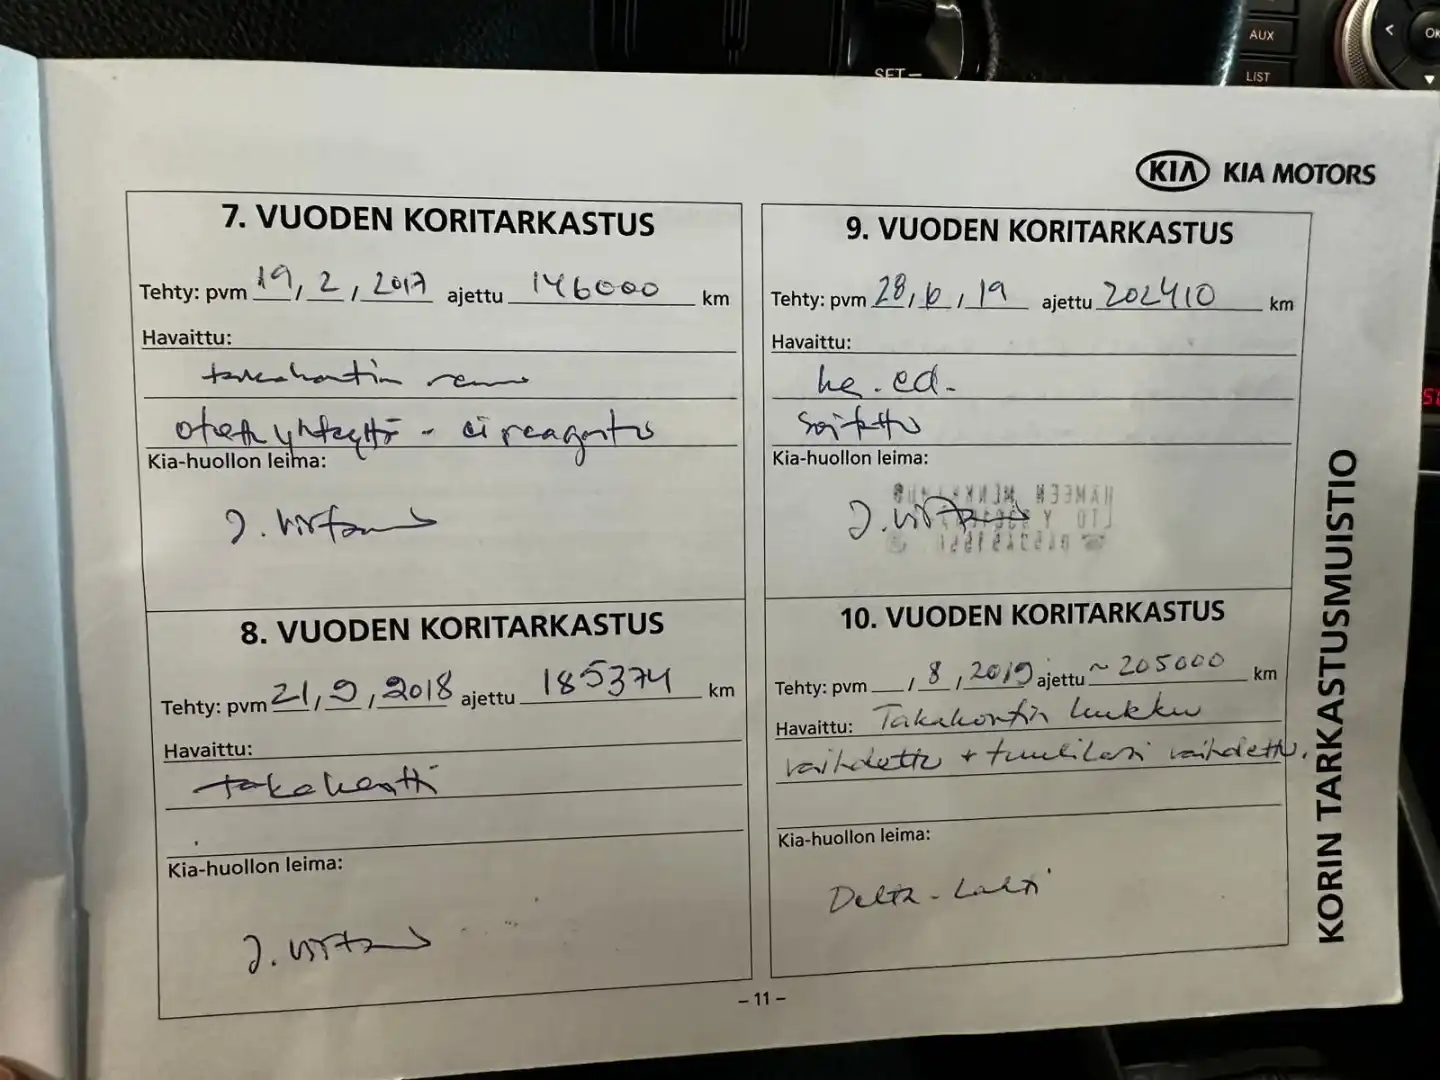 SET
AUX
LIST
OK
KIA KIA MOTORS
7. VUODEN KORITARKASTUS
Tehty: pvm 19, 2, 2017 ajettu 146000 km
Havaittu:
takakontin
otettu yhteyttä - ei reagointia
Kia-huollon leima:
J. Virtanen
8. VUODEN KORITARKASTUS
Tehty: pvm 21, 9, 2018 ajettu 185374 km
Havaittu:
takakontti
Kia-huollon leima:
J. Virtanen
9. VUODEN KORITARKASTUS
Tehty: pvm 28, 6, 19 ajettu 202410 km
Havaittu:
ks. ed.
soitettu
Kia-huollon leima:
J. Virtanen
10. VUODEN KORITARKASTUS
Tehty: pvm , 8, 2019 ajettu ~ 205000 km
Havaittu: Takakontin luukku
vaihdettu + tuulilasi vaihdettu.
Kia-huollon leima:
Delta-Lahti
KORIN TARKASTUSMUISTIO
– 11 –